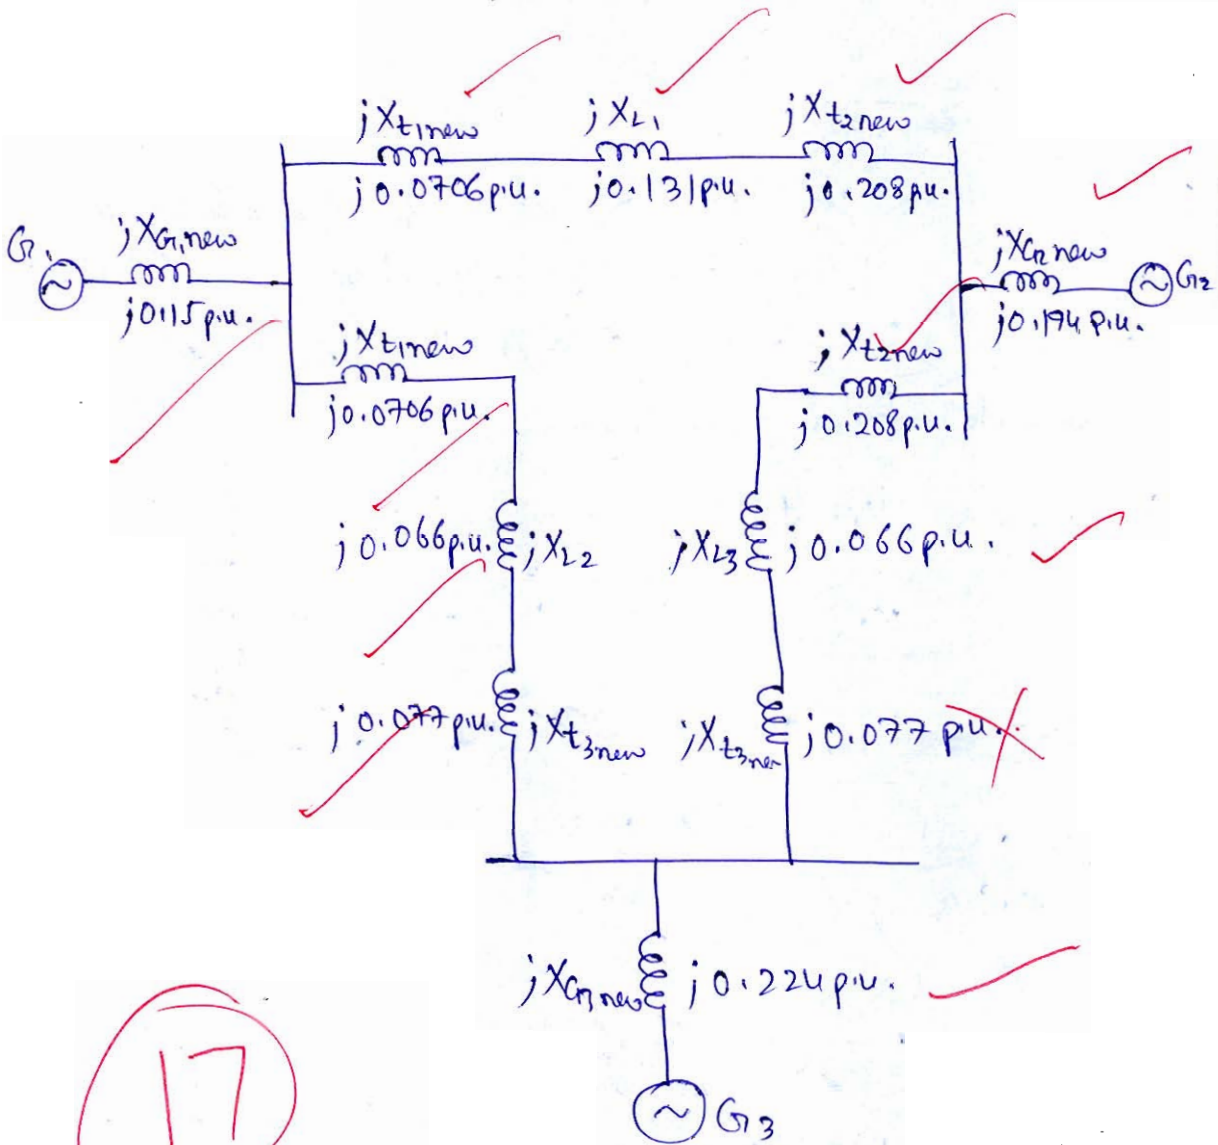 jXt1new jXL1 jXt2new
j0.0706p.u. j0.131p.u. j0.208p.u.
G1 jXG1new
j0.15p.u.
jXG2new G2
j0.194 p.u.
jXt1new
j0.0706p.u.
jXt2new
j0.208p.u.
j0.066p.u. jXL2 jXL3 j0.066p.u.
j0.077p.u. jXt3new jXt3new j0.077 p.u.
jXG3new j0.224p.u.
G3
17